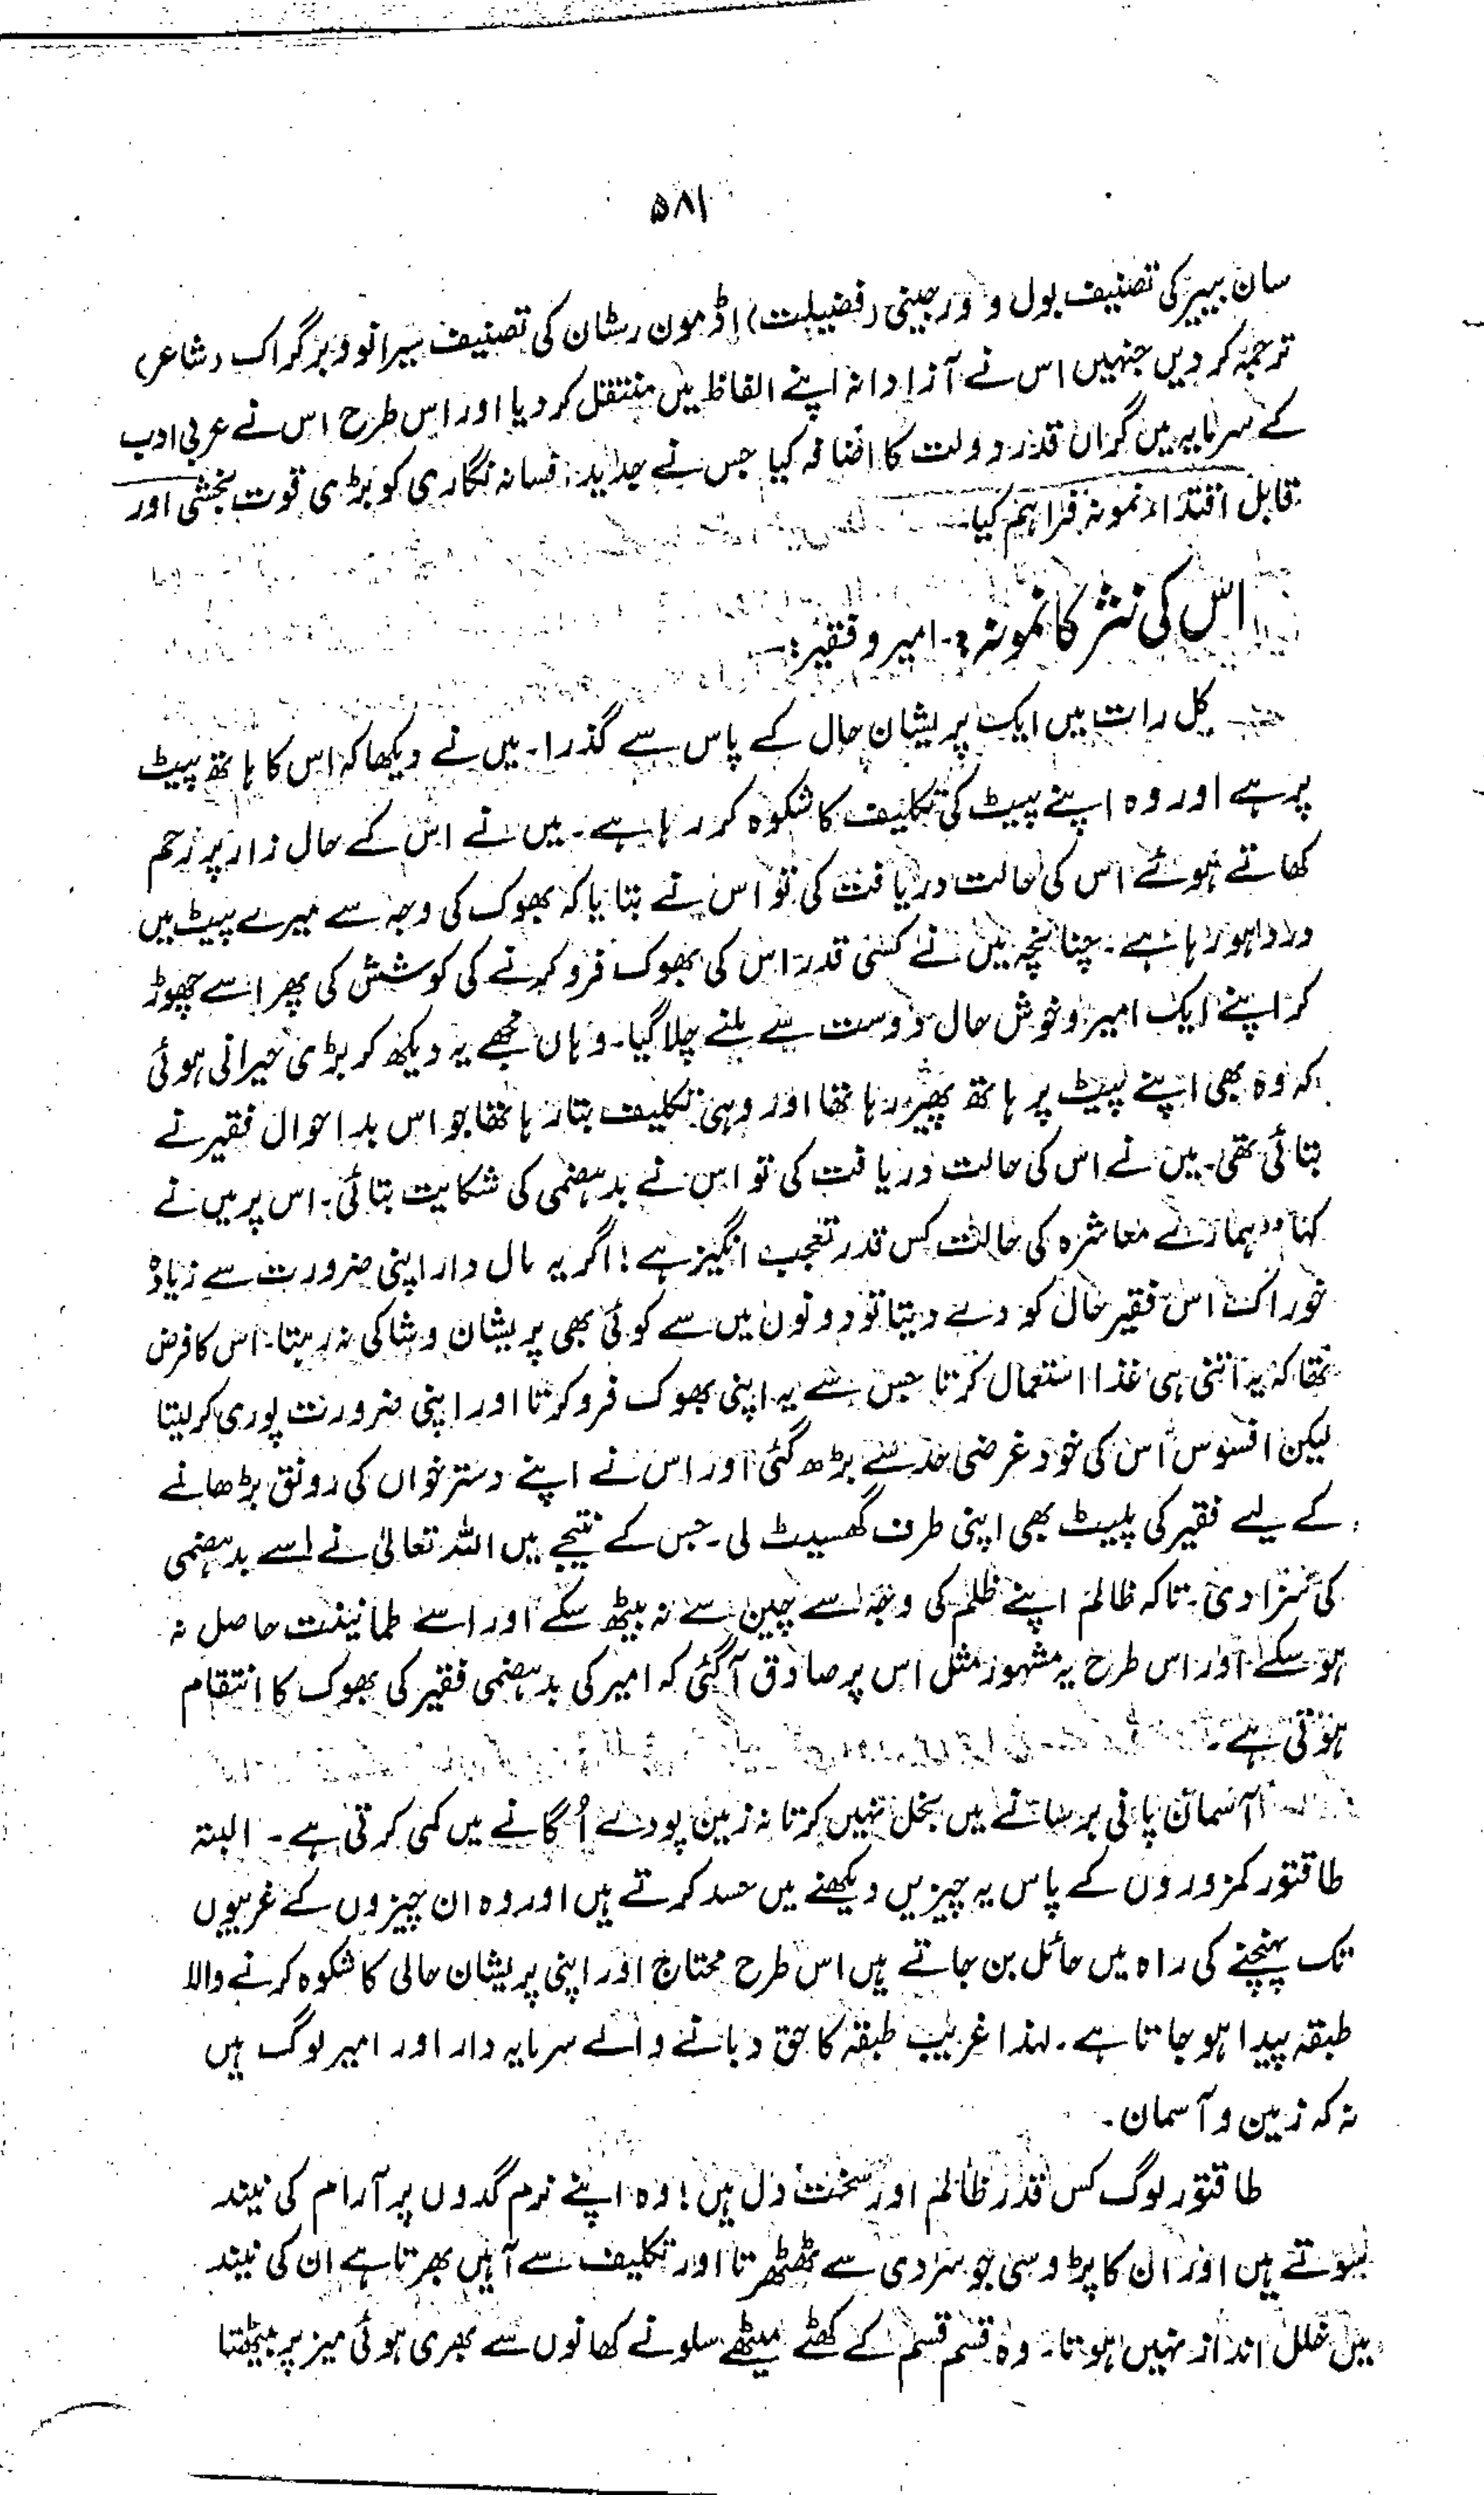 ۵۸۱
سان بیپیر کی تصنیف بول و ورجینی (فضیلت) اڈمون رسٹان کی تصنیف سیرانو وبرگراک (شاعر)
ترجمہ کر دیں جنہیں اس نے آزادانہ اپنے الفاظ میں منتقل کر دیا اور اس طرح اس نے عربی ادب
کے سرمایہ میں گراں قدر دولت کا اضافہ کیا جس نے جدید فسانہ نگاری کو بڑی قوت بخشی اور
قابل اقتداء نمونہ فراہم کیا۔
اس کی نثر کا نمونہ :- امیر و فقیر :-
کل رات میں ایک پریشان حال کے پاس سے گذرا۔ میں نے دیکھا کہ اس کا ہاتھ پیٹ
پر ہے اور وہ اپنے پیٹ کی تکلیف کا شکوہ کر رہا ہے۔ میں نے اس کے حال زار پر رحم
کھاتے ہوئے اس کی حالت دریافت کی تو اس نے بتایا کہ بھوک کی وجہ سے میرے پیٹ میں
درد ہو رہا ہے۔ چنانچہ میں نے کسی قدر اس کی بھوک فرو کرنے کی کوشش کی پھر اسے چھوڑ
کر اپنے ایک امیر و خوش حال دوست سے ملنے چلا گیا۔ وہاں مجھے یہ دیکھ کر بڑی حیرانی ہوئی
کہ وہ بھی اپنے پیٹ پر ہاتھ پھیر رہا تھا اور وہی تکلیف بتا رہا تھا جو اس بد احوال فقیر نے
بتائی تھی۔ میں نے اس کی حالت دریافت کی تو اس نے بدہضمی کی شکایت بتائی۔ اس پر میں نے
کہا "ہمارے معاشرہ کی حالت کس قدر تعجب انگیز ہے! اگر یہ مال دار اپنی ضرورت سے زیادہ
خوراک اس فقیر حال کو دے دیتا تو دونوں میں سے کوئی بھی پریشان و شاکی نہ رہتا۔ اس کا فرض
تھا کہ یہ اتنی ہی غذا استعمال کرتا جس سے یہ اپنی بھوک فرو کرتا اور اپنی ضرورت پوری کر لیتا
لیکن افسوس اس کی خود غرضی حد سے بڑھ گئی اور اس نے اپنے دسترخواں کی رونق بڑھانے
کے لیے فقیر کی پلیٹ بھی اپنی طرف گھسیٹ لی۔ جس کے نتیجے میں اللہ تعالیٰ نے اسے بدہضمی
کی سزا دی۔ تاکہ ظالم اپنے ظلم کی وجہ سے چین سے نہ بیٹھ سکے اور اسے طمانینت حاصل نہ
ہو سکے اور اس طرح یہ مشہور مثل اس پر صادق آ گئی کہ امیر کی بدہضمی فقیر کی بھوک کا انتقام
ہوتی ہے۔
آسمان پانی برسانے میں بخل نہیں کرتا نہ زمین پودے اُگانے میں کمی کرتی ہے۔ البتہ
طاقتور کمزوروں کے پاس یہ چیزیں دیکھنے میں حسد کرتے ہیں اور وہ ان چیزوں کے غریبوں
تک پہنچنے کی راہ میں حائل بن جاتے ہیں اس طرح محتاج اور اپنی پریشان حالی کا شکوہ کرنے والا
طبقہ پیدا ہو جاتا ہے۔ لہذا غریب طبقہ کا حق دبانے والے سرمایہ دار اور امیر لوگ ہیں
نہ کہ زمین و آسمان۔
طاقتور لوگ کس قدر ظالم اور سخت دل ہیں! وہ اپنے نرم گدوں پر آرام کی نیند
سوتے ہیں اور ان کا پڑوسی جو سردی سے ٹھٹھرتا اور تکلیف سے آہیں بھرتا ہے ان کی نیند
میں خلل انداز نہیں ہوتا۔ وہ قسم قسم کے کھٹے میٹھے سلونے کھانوں سے بھری ہوئی میز پر بیٹھتا